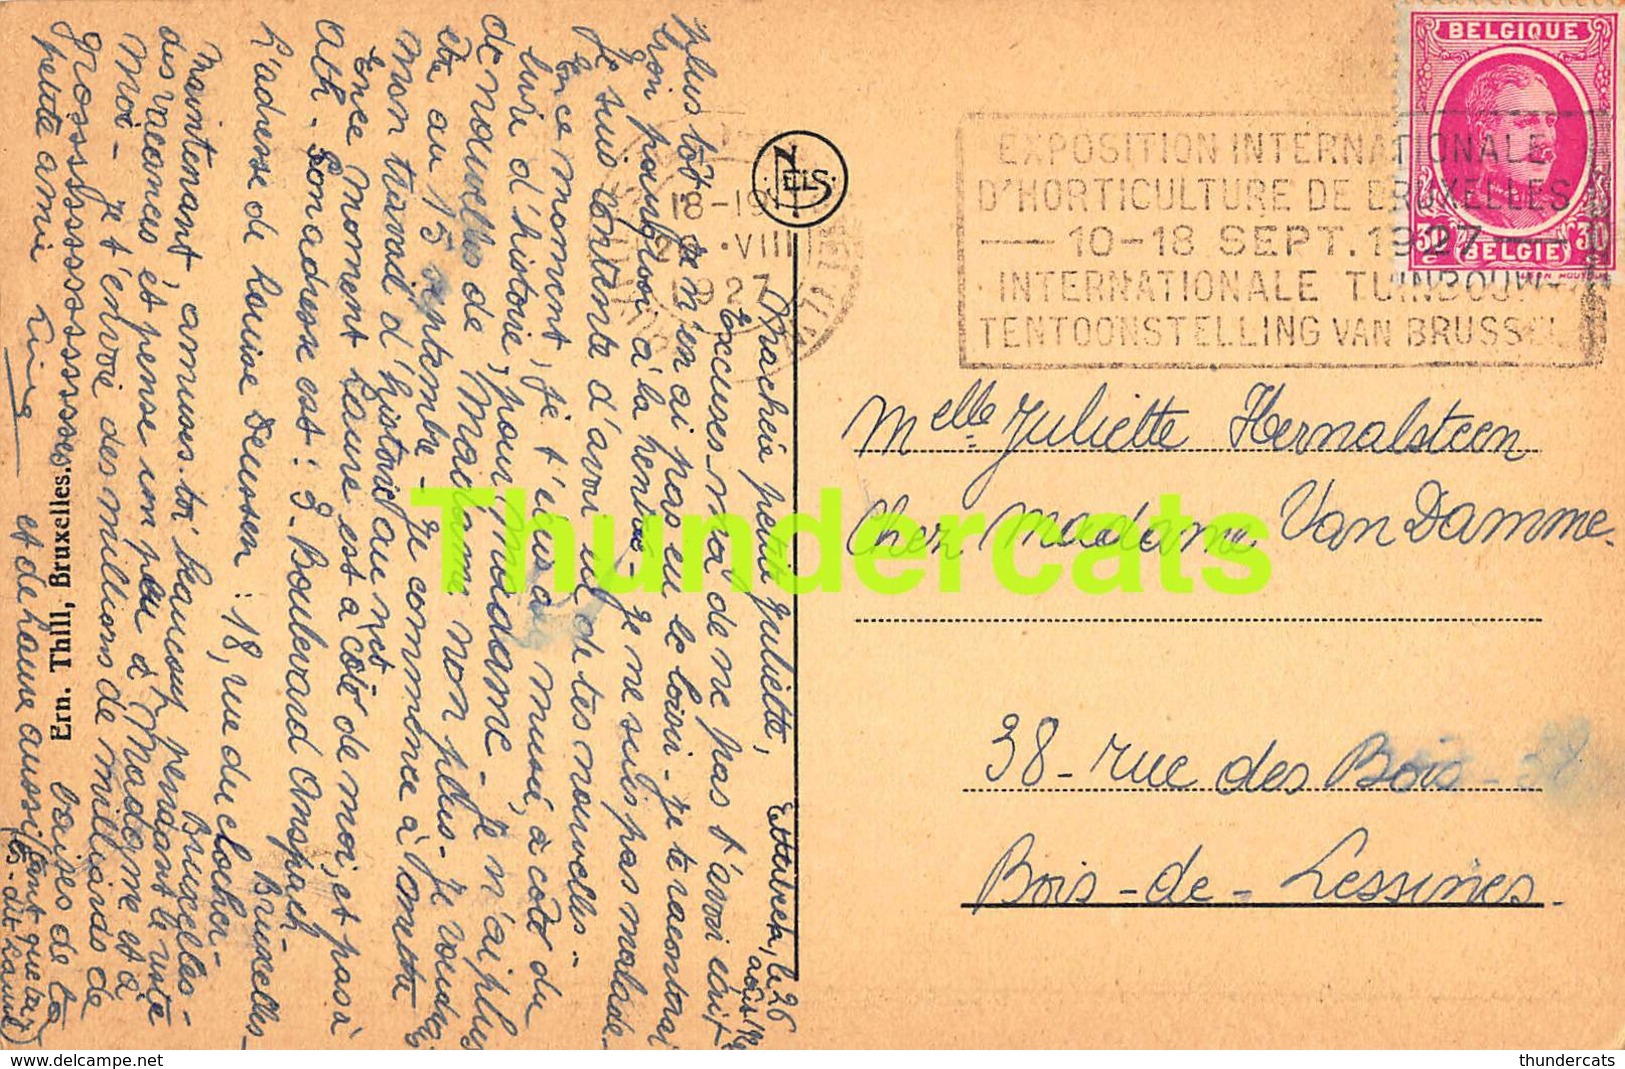 BELGIQUE
BELGIE
EXPOSITION INTERNATIONALE
D'HORTICULTURE DE BRUXELLES
10-18 SEPT. 1927
INTERNATIONALE TUINBOUW-
TENTOONSTELLING VAN BRUSSEL
18-19
VIII
1927
NELS
Melle Juliette Hernalsteen
chez madame Van Damme.
38 - rue des Bois - 38
Bois - de - Lessines.
Etterbeek, le 26
août
Ma chérie petite Juliette,
Excuses-moi de ne pas t'avoir écrit
plus tôt je n'en ai pas eu le loisir - je te raconterai
pourquoi à la rentrée - Je ne suis pas malade.
Je suis contente d'avoir eu de tes nouvelles -
En ce moment, je t'écris au musé, à côté du
livre d'histoire, pour madame - je n'ai plus
de nouvelles de Madame non plus - je voudrais
être au 15 septembre - Je commence à mettre
mon travail d'histoire au net
En ce moment Laure est à côté de moi, et passi
Son adresse est : 3 - Boulevard Anspach -
Bruxelles -
L'adresse de Louise Deussen : 18, rue du clocher -
Bruxelles -
Maintenant, amuses-toi beaucoup pendant le reste
des vacances et pense un peu à Madame et à
Moi - je t'envoie des millions de milliards de
grosssssssssssssssses baises de ta
petite amie
et de Laure aussi
(dit Laure)
Ern. Thill, Bruxelles.
Thundercats
© delcampe.net
thundercats